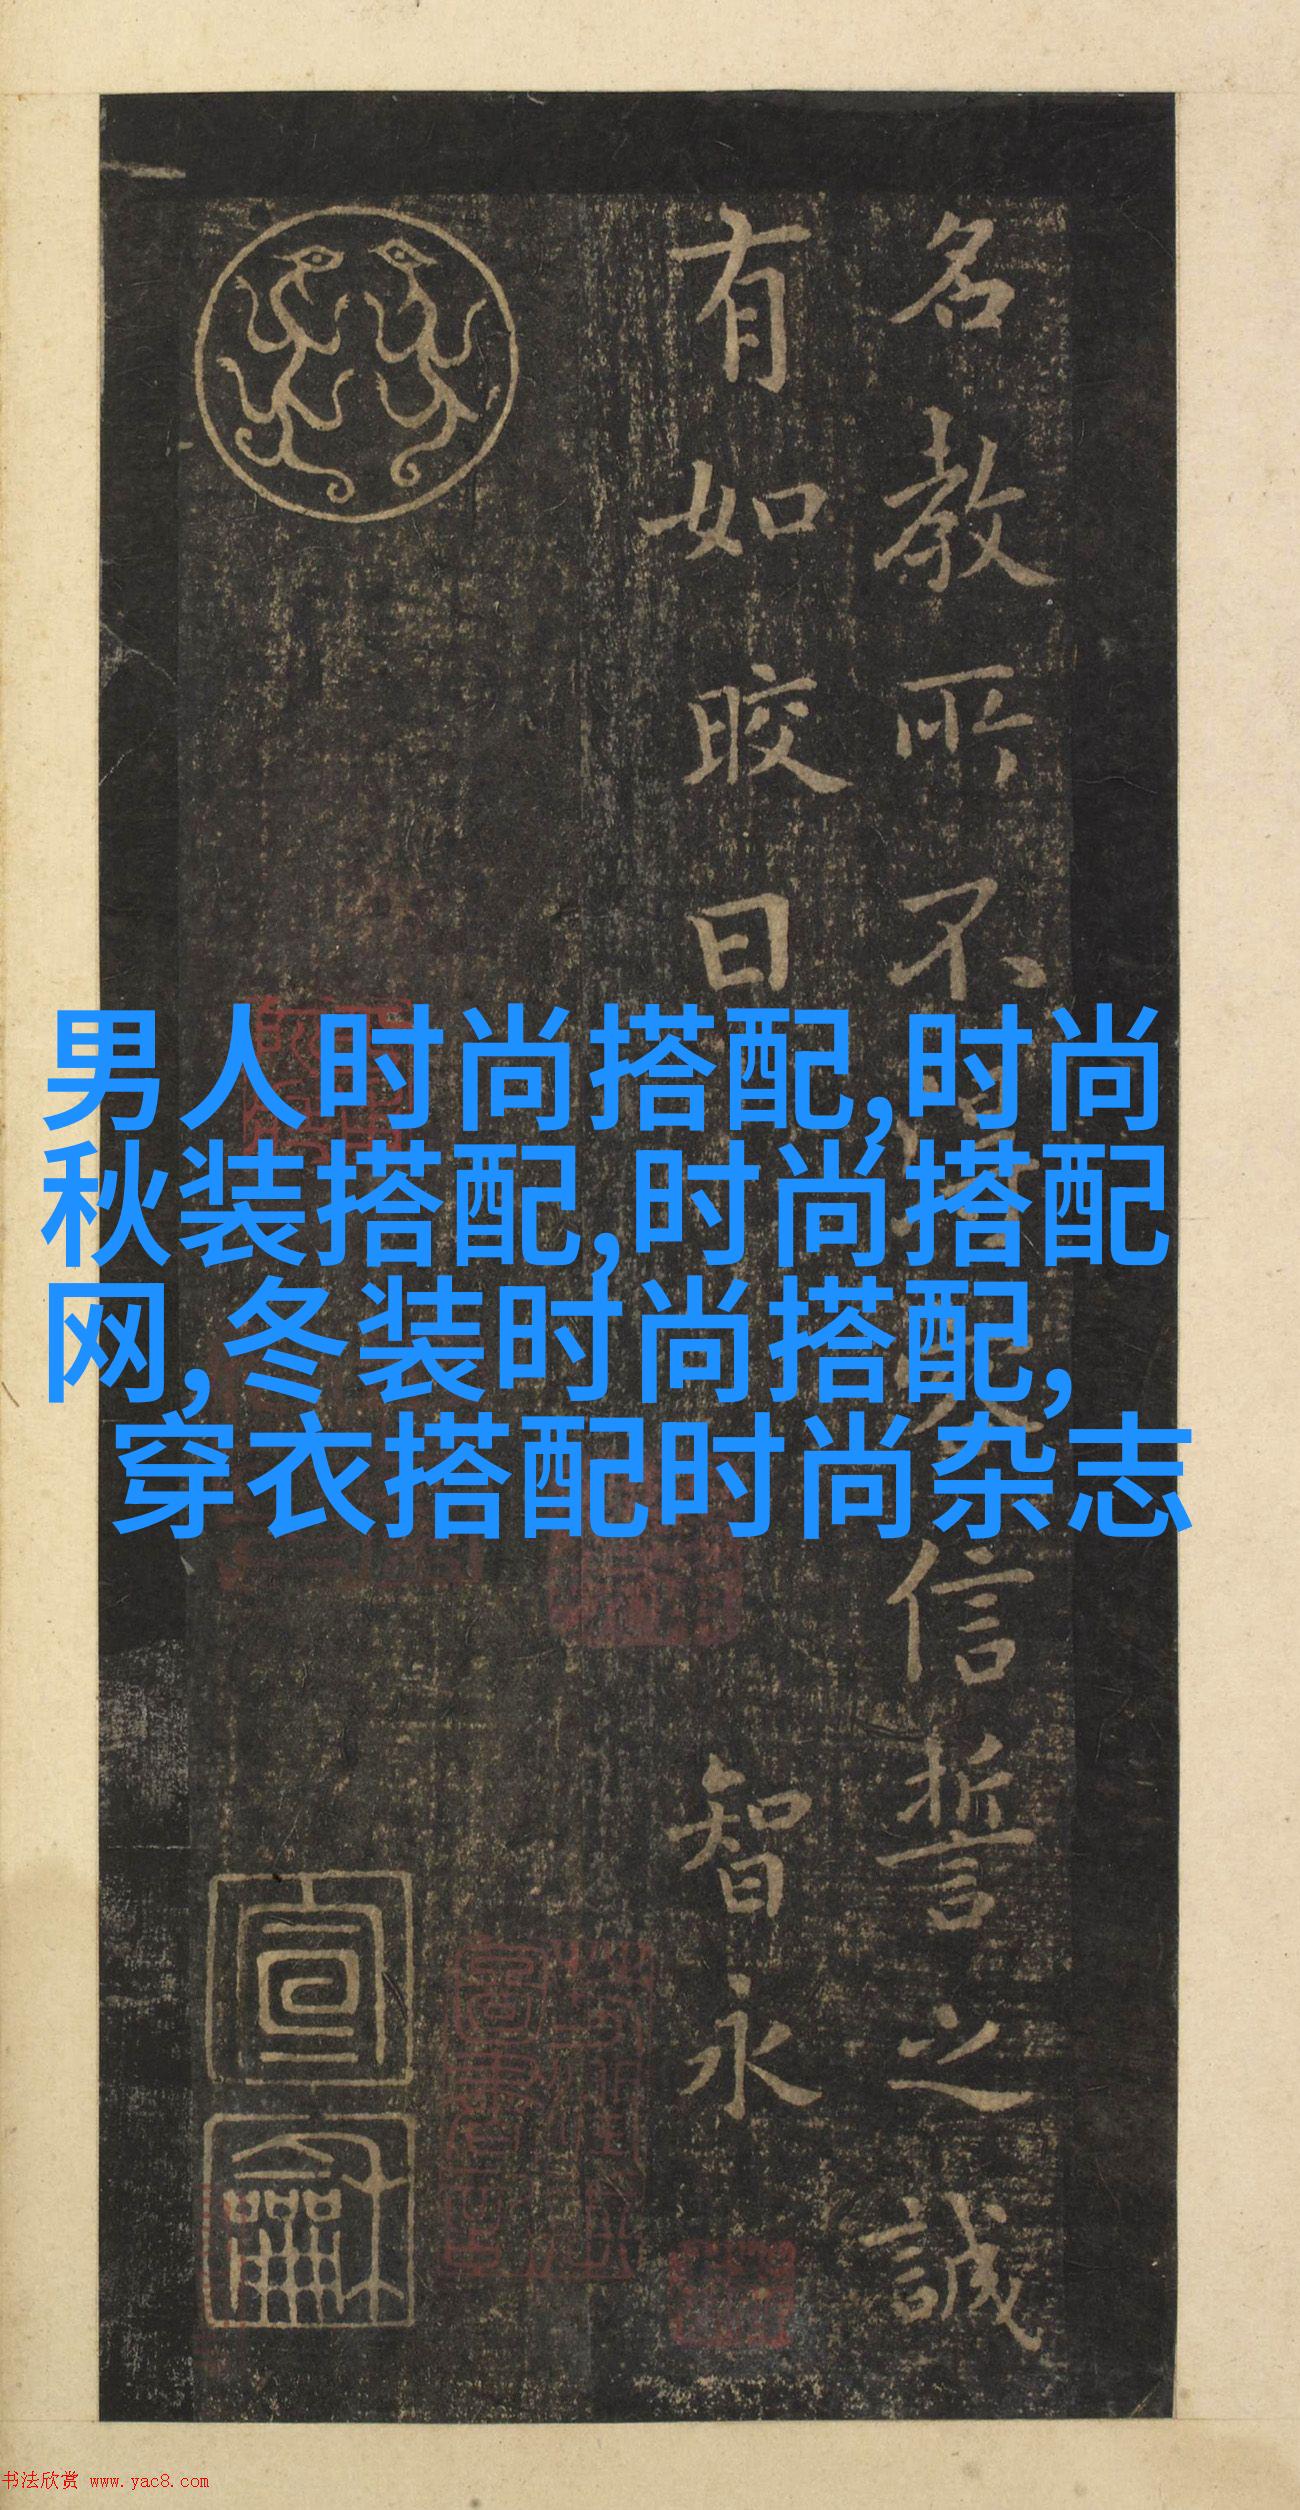 男人时尚搭配,时尚
秋装搭配,时尚搭配
网,冬装时尚搭配,
穿衣搭配时尚杂志
名教所不
信誓之誠
有如皎日
智永
宣
龢
书法欣赏 www.yac8.com